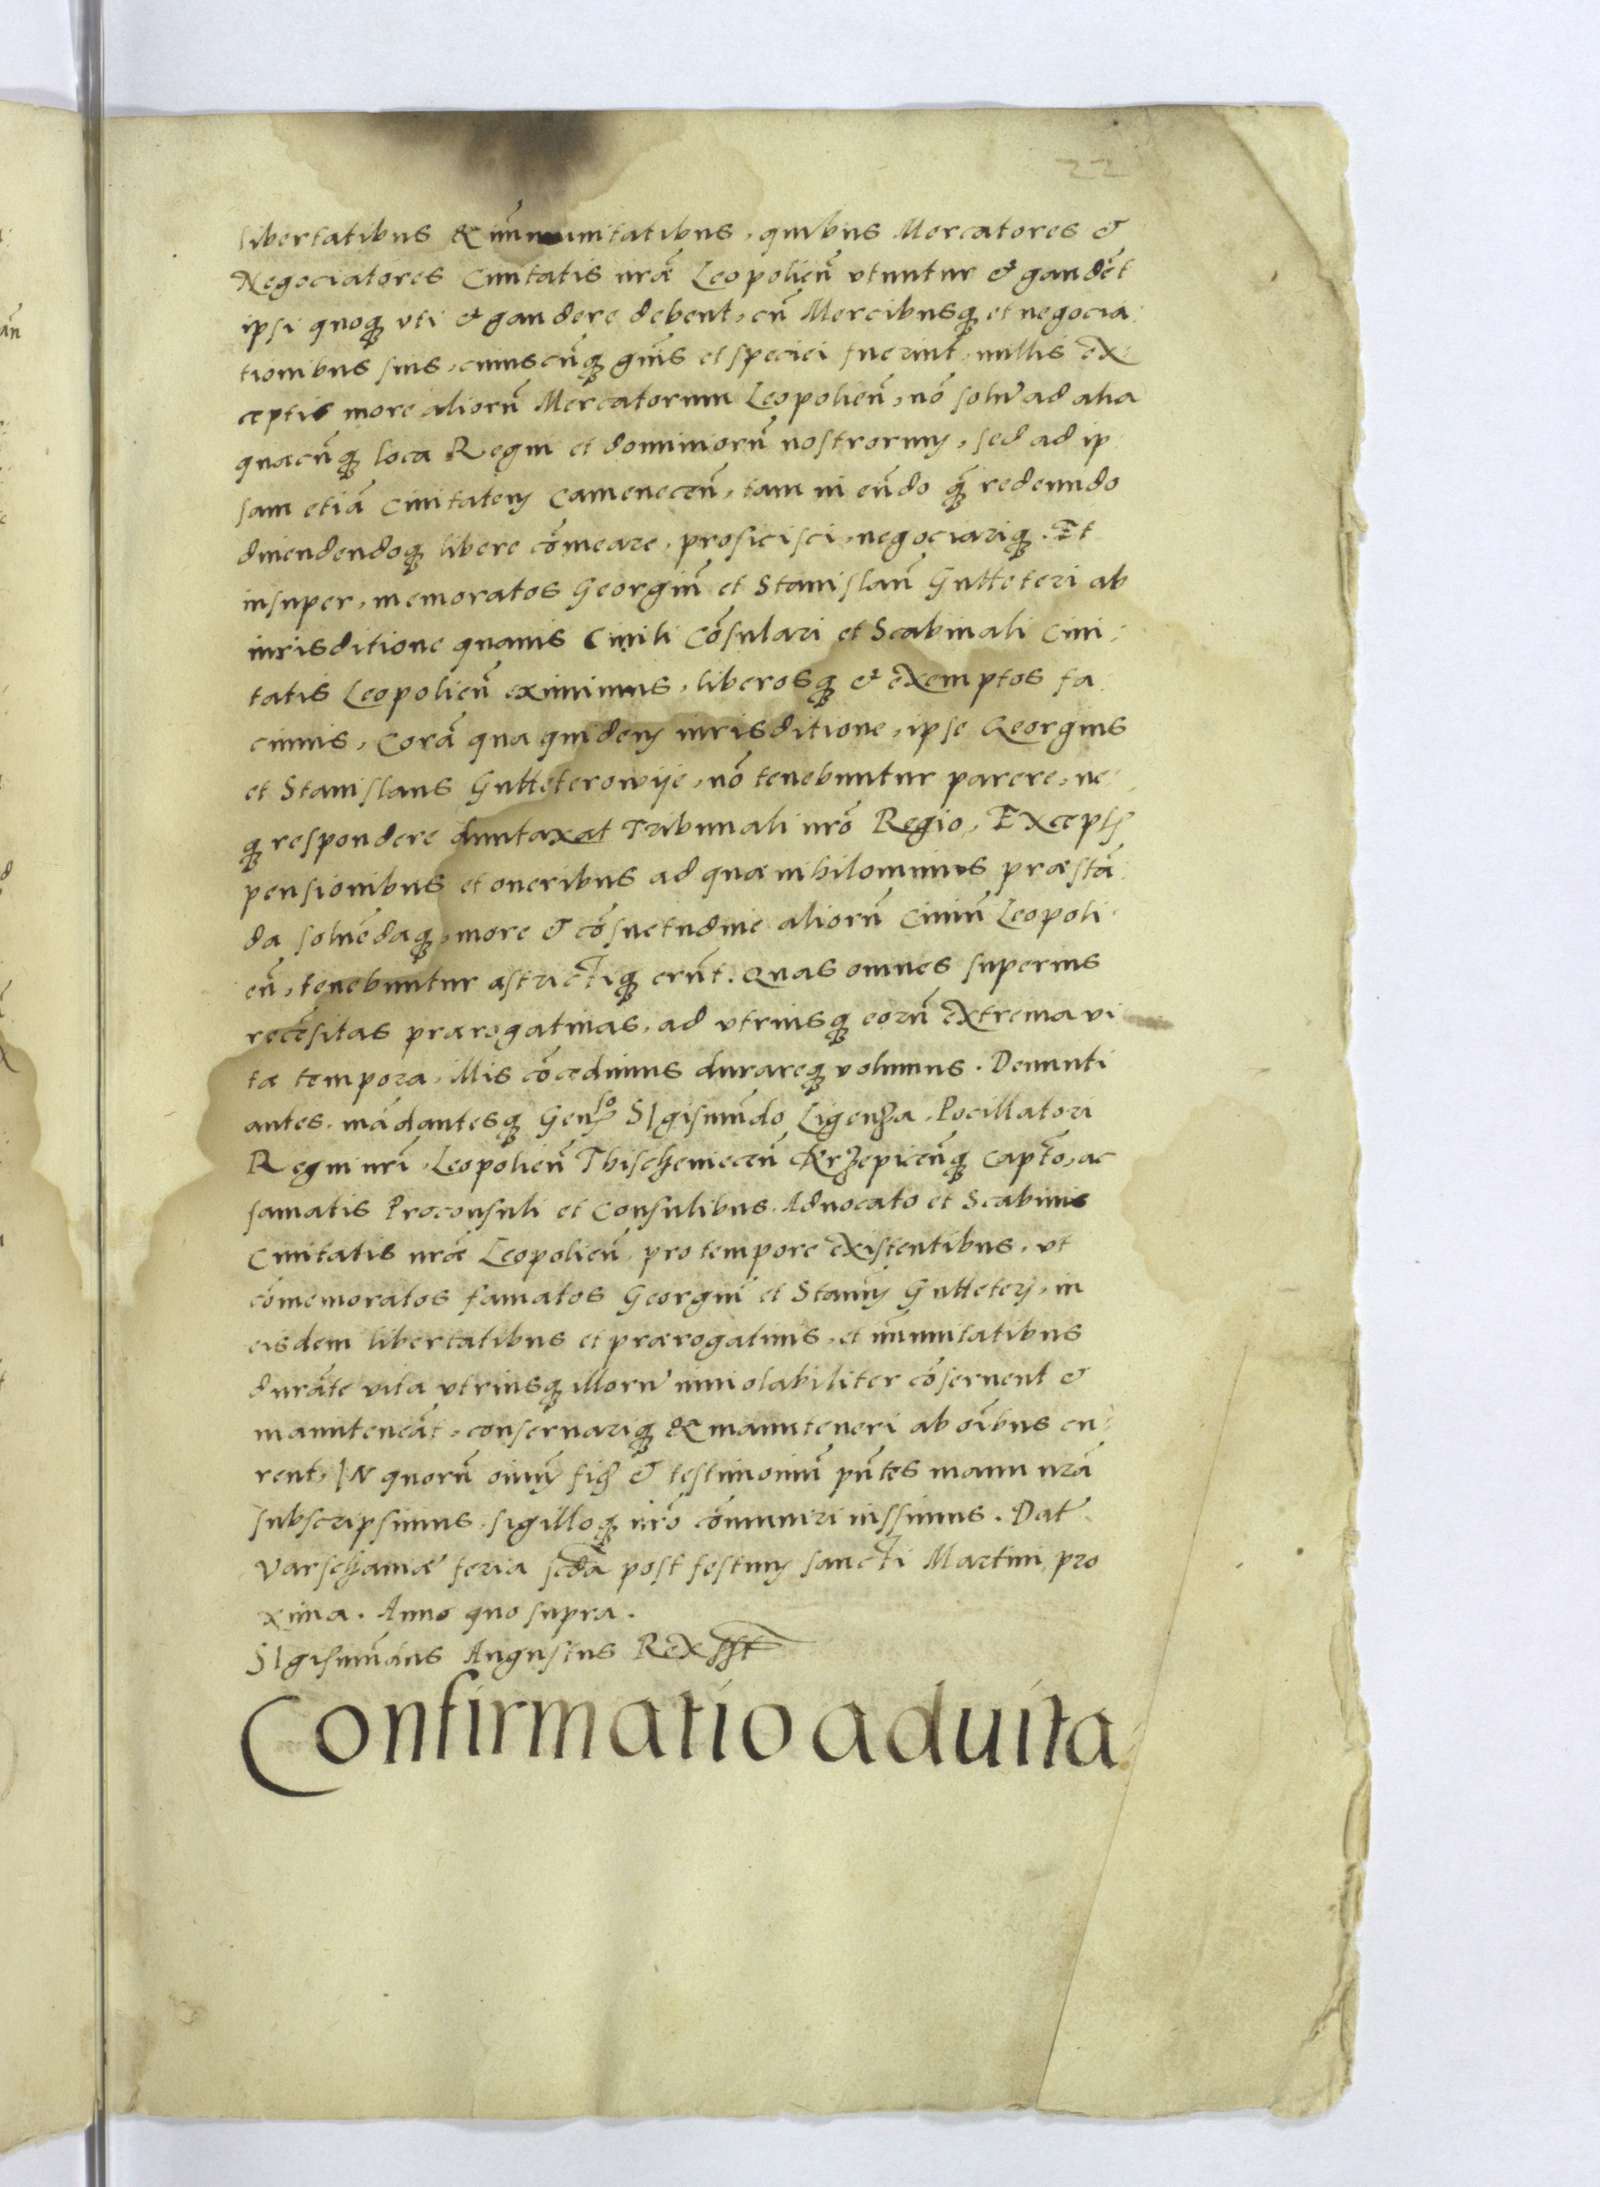 22
libertatibus & im̃munitatibus, quibus Mercatores &
Negociatores Ciuitatis nr̃æ Leopolieñ vtuntur & gaudẽt
ipsi quoq; vti & gaudere debent, cũ Mercibusq; et negocia:
tionibus suis, cuiuscũq; gñis et speciei fuerint, nullis ex:
ceptis more aliorũ Mercatorum Leopolieñ, nõ solũ ad alia
quæcũq; loca Regni et dominiorũ nostrorum, sed ad ip:
sam etiã Ciuitatem Cameneceñ, tam in eũdo q̃ redeundo
diuendendoq; libere cõmeare, proficisci, negociariq;. Et
insuper, memoratos Georgiũ et Stanislaũ Gutteteri ab
iurisditione quauis Ciuili Cõsulari et Scabinali Ciui:
tatis Leopolieñ eximimus, liberosq; & exemptos fa:
cimus, Corã qua quidem iurisditione, ipse Georgius
et Stanislaus Gutteterowije, nõ tenebuntur parere, ne:
q; respondere duntaxat Tribunali nrõ Regio, Except
pensionibus et oneribus ad quæ nihilominus præstã:
da soluẽdaq;, more & cõsuetudine aliorũ Ciuiũ Leopoli:
eñ, tenebuntur astrictiq; erũt. Quas omnes superius
recẽsitas prærogatiuas, ad vtriusq; eorũ extrema vi
tæ tempora, illis cõcedimus durareq; volumus. Denunti
antes, mãdantesq; Genso Sigismũdo Ligenza, Pocillatori
Regni nrĩ, Leopolieñ Thischenieceñ Krzepiceñq; Captõ, ac
famatis Proconsuli et Consulibus, Aduocato et Scabinis
Ciuitatis nræ Leopolieñ, pro tempore existentibus, vt
cõmemoratos famatos Georgiũ et Stanũ Guttetery, in
eisdem libertatibus et prærogatiuis, et im̃unitatibus
durãte vita vtriusq; illorũ inuiolabiliter cõseruent &
manuteneãt, conseruariq; & manuteneri ab oĩbus cu:
rent, IN quorũ oiũm fid & testimoniũ pñtes manu nrã
subscripsimus, sigilloq; nrõ cõmuniri iussimus. Dat
Varschauiæ feria scdã post festum sancti Martini pro
xima. Anno quo supra.
Sigismũdus Augustus Rex sst
Confirmatio aduita